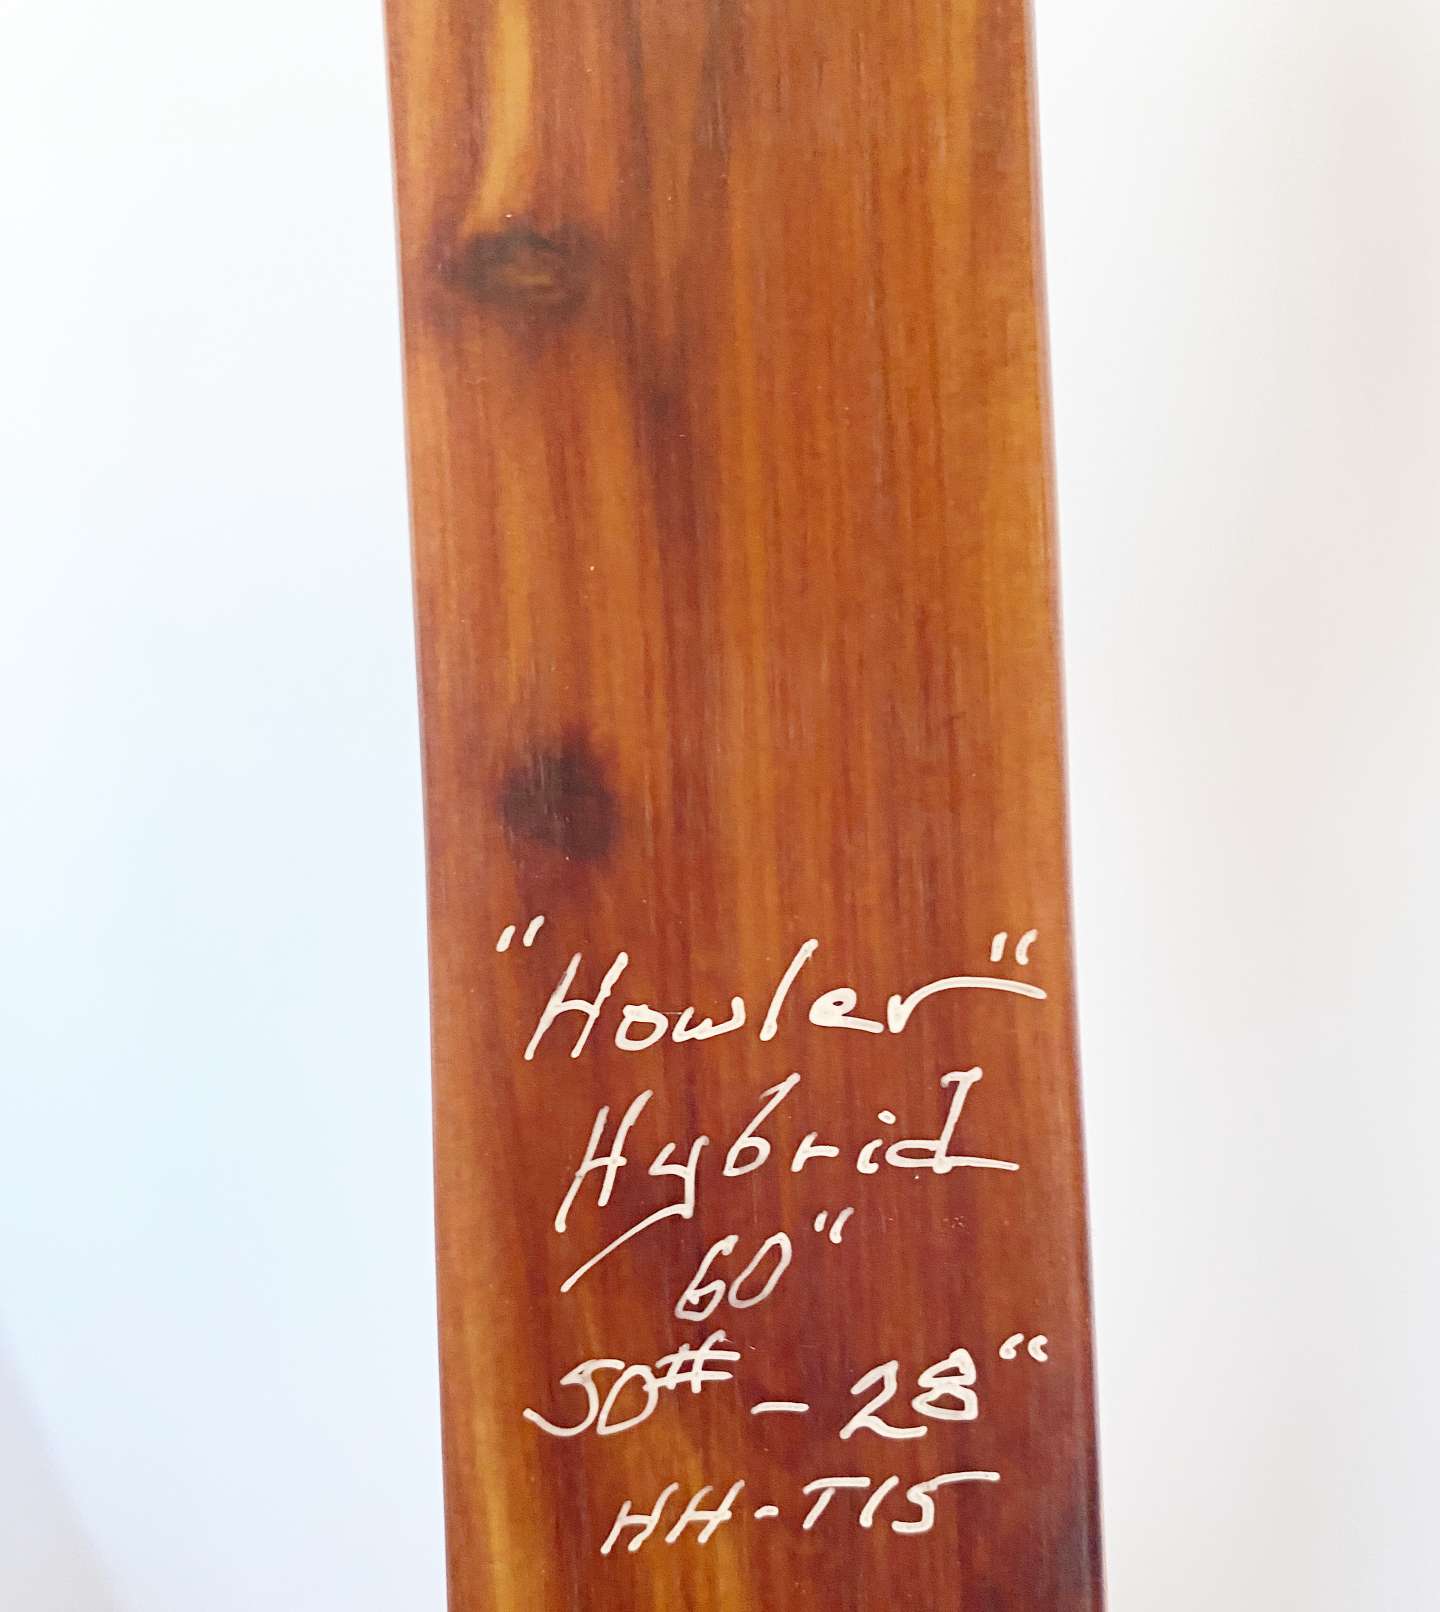 "Howler"
Hybrid
60"
50# - 28"
HH-T15